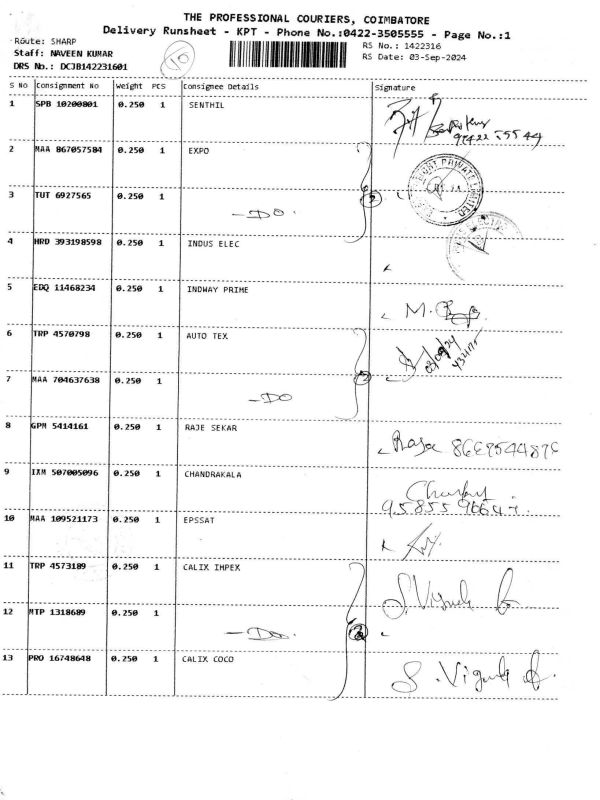 THE PROFESSIONAL COURIERS, COIMBATORE
Delivery Runsheet - KPT - Phone No.:0422-3505555 - Page No.:1
Route: SHARP
RS No.: 1422316
Staff: NAVEEN KUMAR
10
RS Date: 03-Sep-2024
DRS No.: DCJB142231601
S No Consignment No Weight PCS Consignee Details Signature
1 SPB 10200801 0.250 1 SENTHIL
2 MAA 867057584 0.250 1 EXPO
3 TUT 6927565 0.250 1 -DO. 2
4 HRD 393198598 0.250 1 INDUS ELEC
5 EDQ 11468234 0.250 1 INDWAY PRIME M.
6 TRP 4570798 0.250 1 AUTO TEX 03/09/24
7 MAA 704637638 0.250 1 -DO
8 GPM 5414161 0.250 1 RAJE SEKAR Raja
9 IXM 507005096 0.250 1 CHANDRAKALA
10 MAA 109521173 0.250 1 EPSSAT
11 TRP 4573189 0.250 1 CALIX IMPEX S. Vignesh
12 MTP 1318689 0.250 1 -Do.
13 PRO 16748648 0.250 1 CALIX COCO S. Vignesh